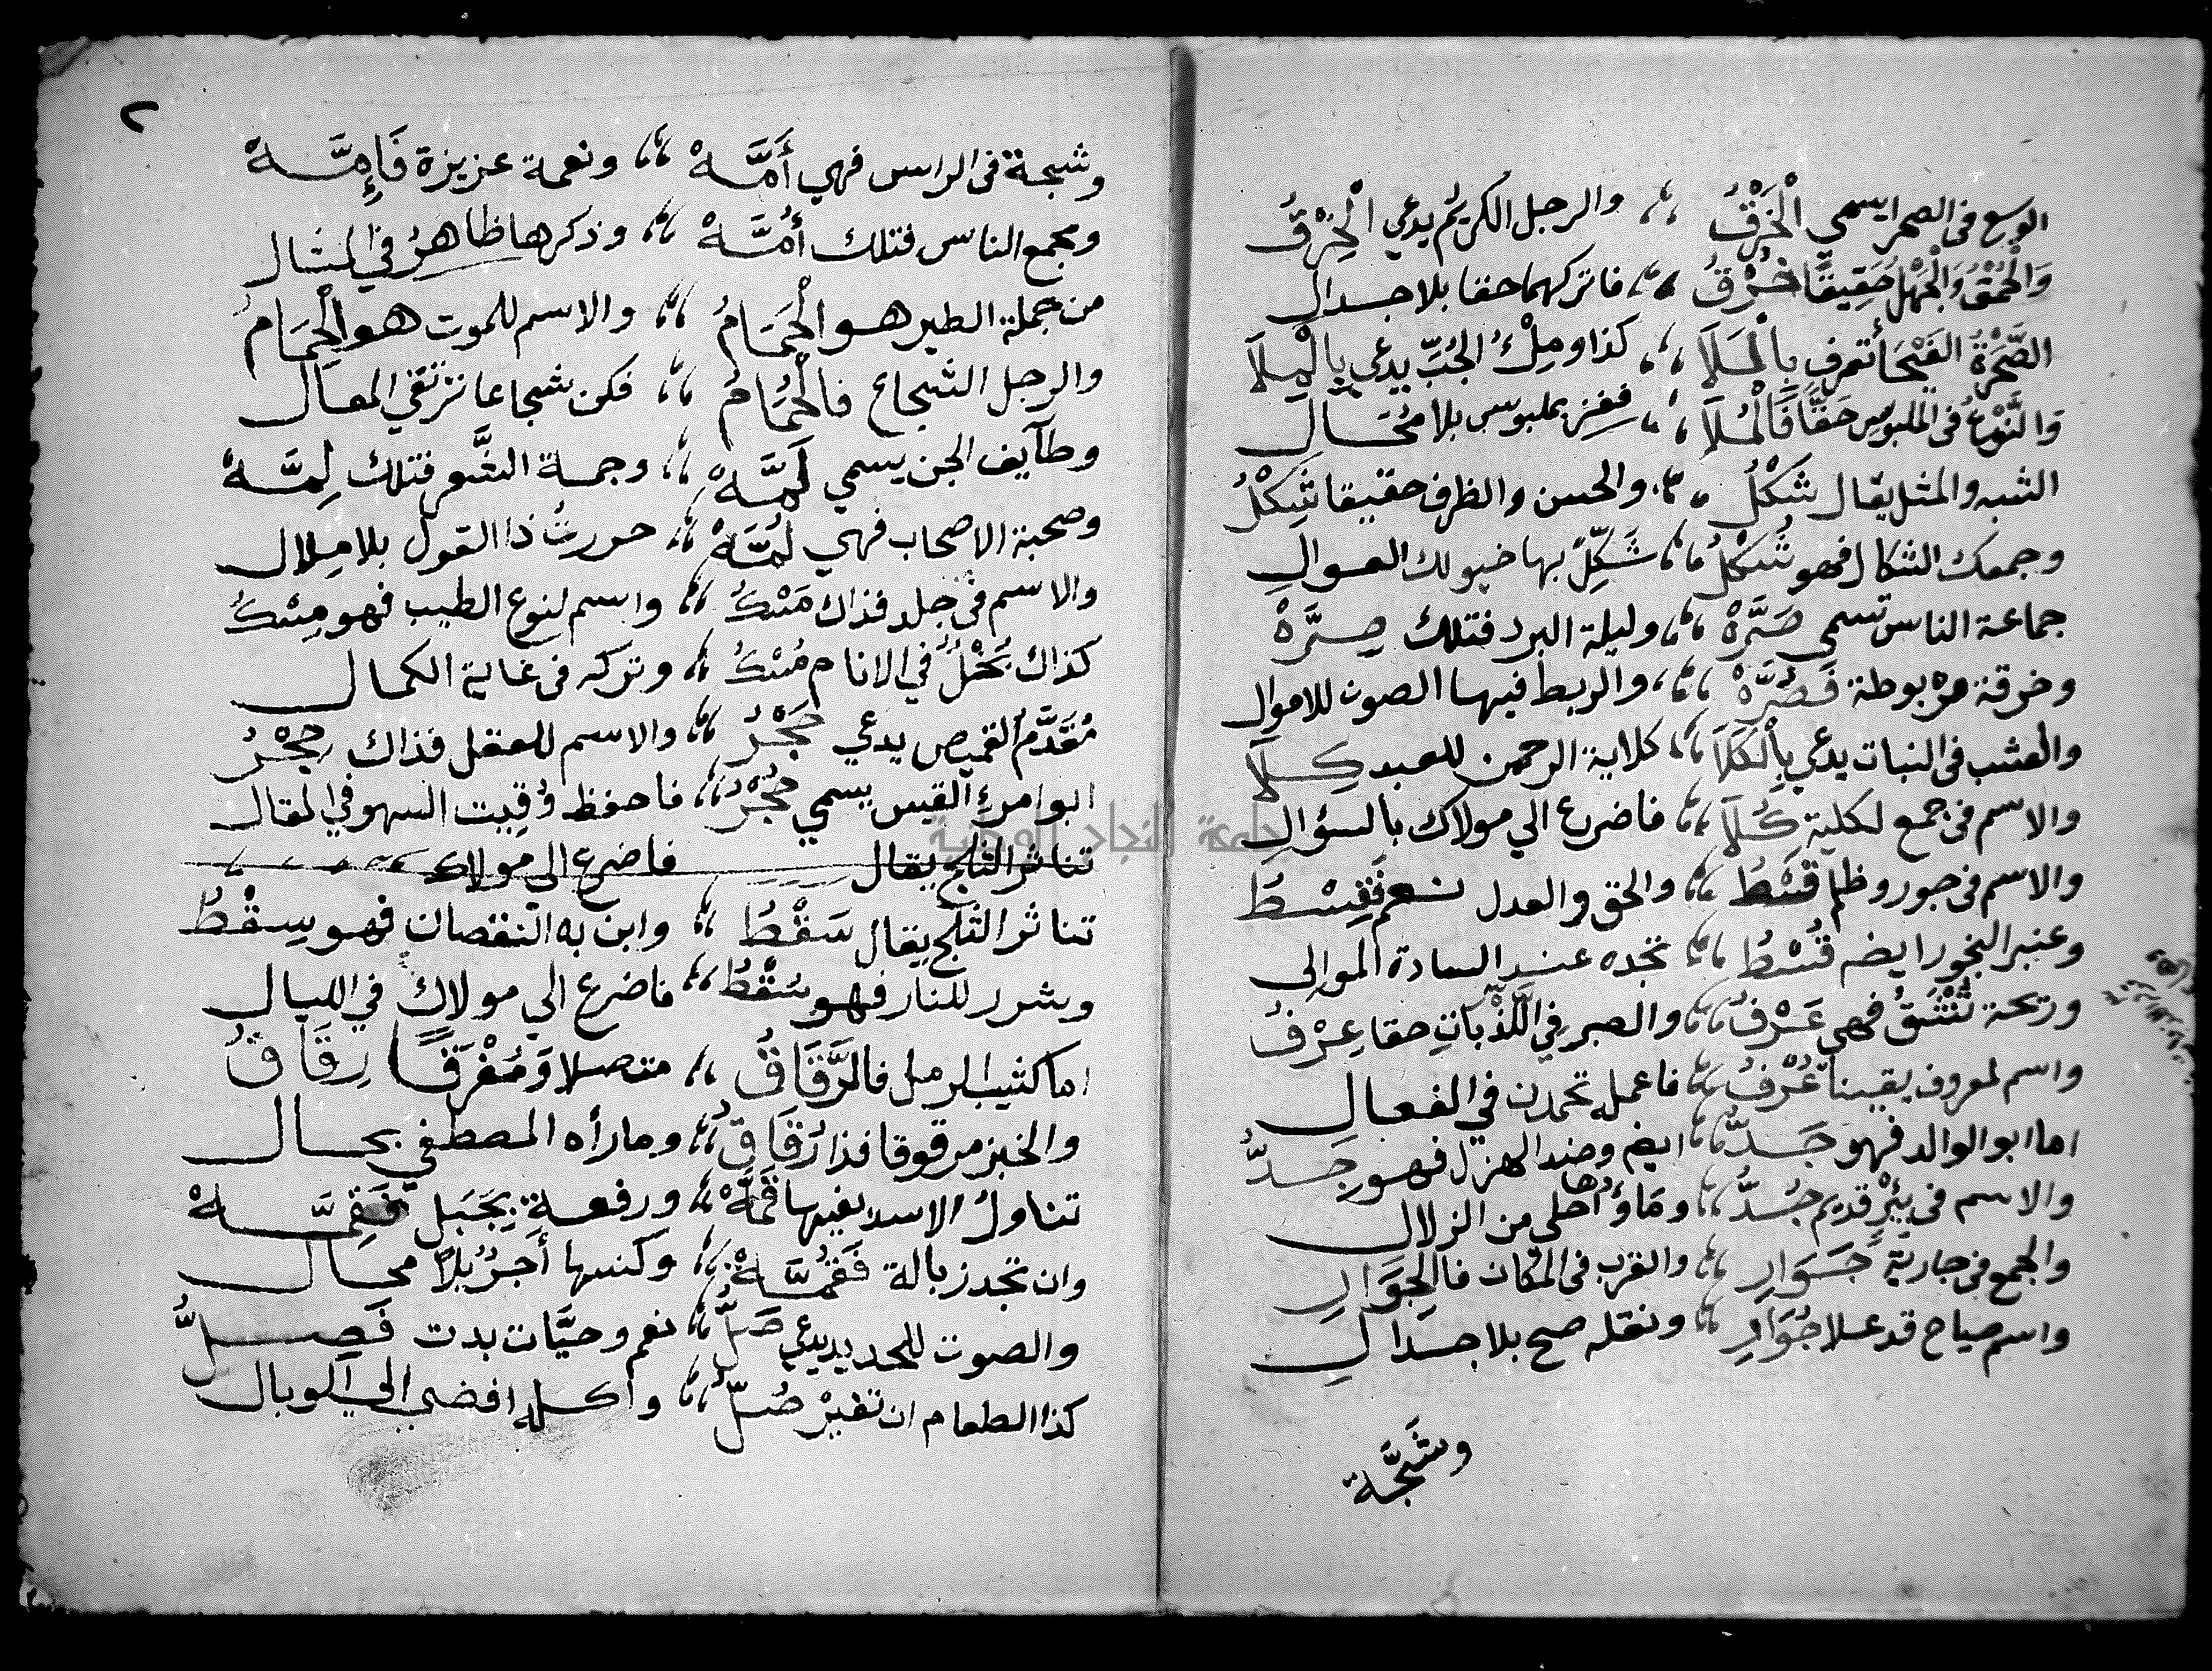 الوسع في الصحرا يسمي الْخَرْقُ ،، والرجل الكريم يدعي الْخِرْقُ
وَالْحُمْقُ وَالْجَهْلُ حَقِيقًا خُرْقُ ،، فاتركهما حقا بلا جدال
الصَّحْرَةُ الفَيْحَا تُعرف بِالْمَلَا ،، كذا ومِلْءُ الجُبِّ يدعي بِالْمِلَا
وَالنَّوْعُ في الملبوس حَقًّا فَالْمُلَا ،، ففز بملبوس بلا مُحَال
الشبه والمثل يقال شَكْلُ ،، والحسن والظرف حقيقا شِكْلُ
وجمعك الشكال فهو شُكْلُ ،، شَكِّلْ بها خيولك العوالِ
جماعة الناس تسمي صَرَّهْ ،، وليلة البرد فتلك صِرَّهْ
وخرقة مربوطة فَصُرَّهْ ،، والربط فيها الصون للاموال
والعشب في النبات يدعي بِالْكَلَا ،، كلاية الرحمن للعبد كِلَا
والاسم في جمع لكلية كُلَا ،، فاضرع الي مولاك بالسؤالِ
والاسم في جور وظلم قَسْطُ ،، والحق والعدل نعم فَقِسْطُ
وعنبر البخور ايضم قُسْطُ ،، تجده عند السادة الموالي
وريحة تُنْشَقُ فهي عَرْفُ ،، والصبر في اللَّذْبَاتِ حقا عِرْفُ
واسم لمعروف يقينا عُرْفُ ،، فاعمله تحمدن في الفعال
اما ابو الوالد فهو جَدُّ ،، ايضم وضد الهزل فهو جِدُّ
والاسم في بئْرٍ قديم جُدُّ ،، وَمَاؤُها احلي من الزلال
والجمع في جارية جَوَارِ ،، والقرب في المكان فالجِوَارِ
واسم صياح قد علا جُوَارِ ،، ونقله صح بلا جدالِ
وشَجَّة
٢
وشجة في الراس فهي أَمَّهْ ،، ونعمة عزيزة فَإِمَّهْ
ومجمع الناس فتلك أُمَّهْ ،، وذكرها ظاهرُ في المثال
من جملة الطير هو الْحَمَامُ ،، والاسم للموت هو الْحِمَامُ
والرجل الشجاع فالْحُمَامُ ،، فكن شجاعا ترتقي المعال
وطآيف الجن يسمي لَمَّهْ ،، وجمة الشَّعر فتلك لِمَّهْ
وصحبة الاصحاب فهي لُمَّهْ ،، حررتُ ذا القول بلا مِلال
والاسم في جلد فذاك مَسْكُ ،، واسم لنوع الطيب فهو مِسْكُ
كذاك بُخْلُ في الانام مُسْكُ ،، وتركه في غاية الكمال
مُقَدَّمُ القميص يدعي حَجْرُ ،، والاسم للعقل فذاك حِجْرُ
ابو امرءِ القيس يسمي حُجْرُ ،، فاحفظ وُقِيت السهو في المقال
تناثر الثلج يقال فاضرع الي مولاك
تناثر الثلج يقال سَقْطُ ،، وابن به النقصان فهو سِقْطُ
وشرر للنار فهو سُقْطُ ،، فاضرع الي مولاك في الليال
اما كثيب الرمل فالرَّقَاقُ ،، متصلا وَمُفْرَقًا رِقَاقُ
والخبز مرقوقا فذا رُقَاقُ ،، وما رأه المصطفي بحال
تناولُ الاسد بفيها قَمَّهْ ،، ورفعة بِجَبَلٍ فَقِمَّهْ
وان تجد زبالة فَقُمَّهْ ،، وكنسها أَجَرُ بلا محال
والصوت للحديد يدعي صَلُّ ،، نعم وحيَّات بدت فَصِلُّ
كذا الطعام ان تغيرْ صُلُّ ،، واكله افضي الي الوبال